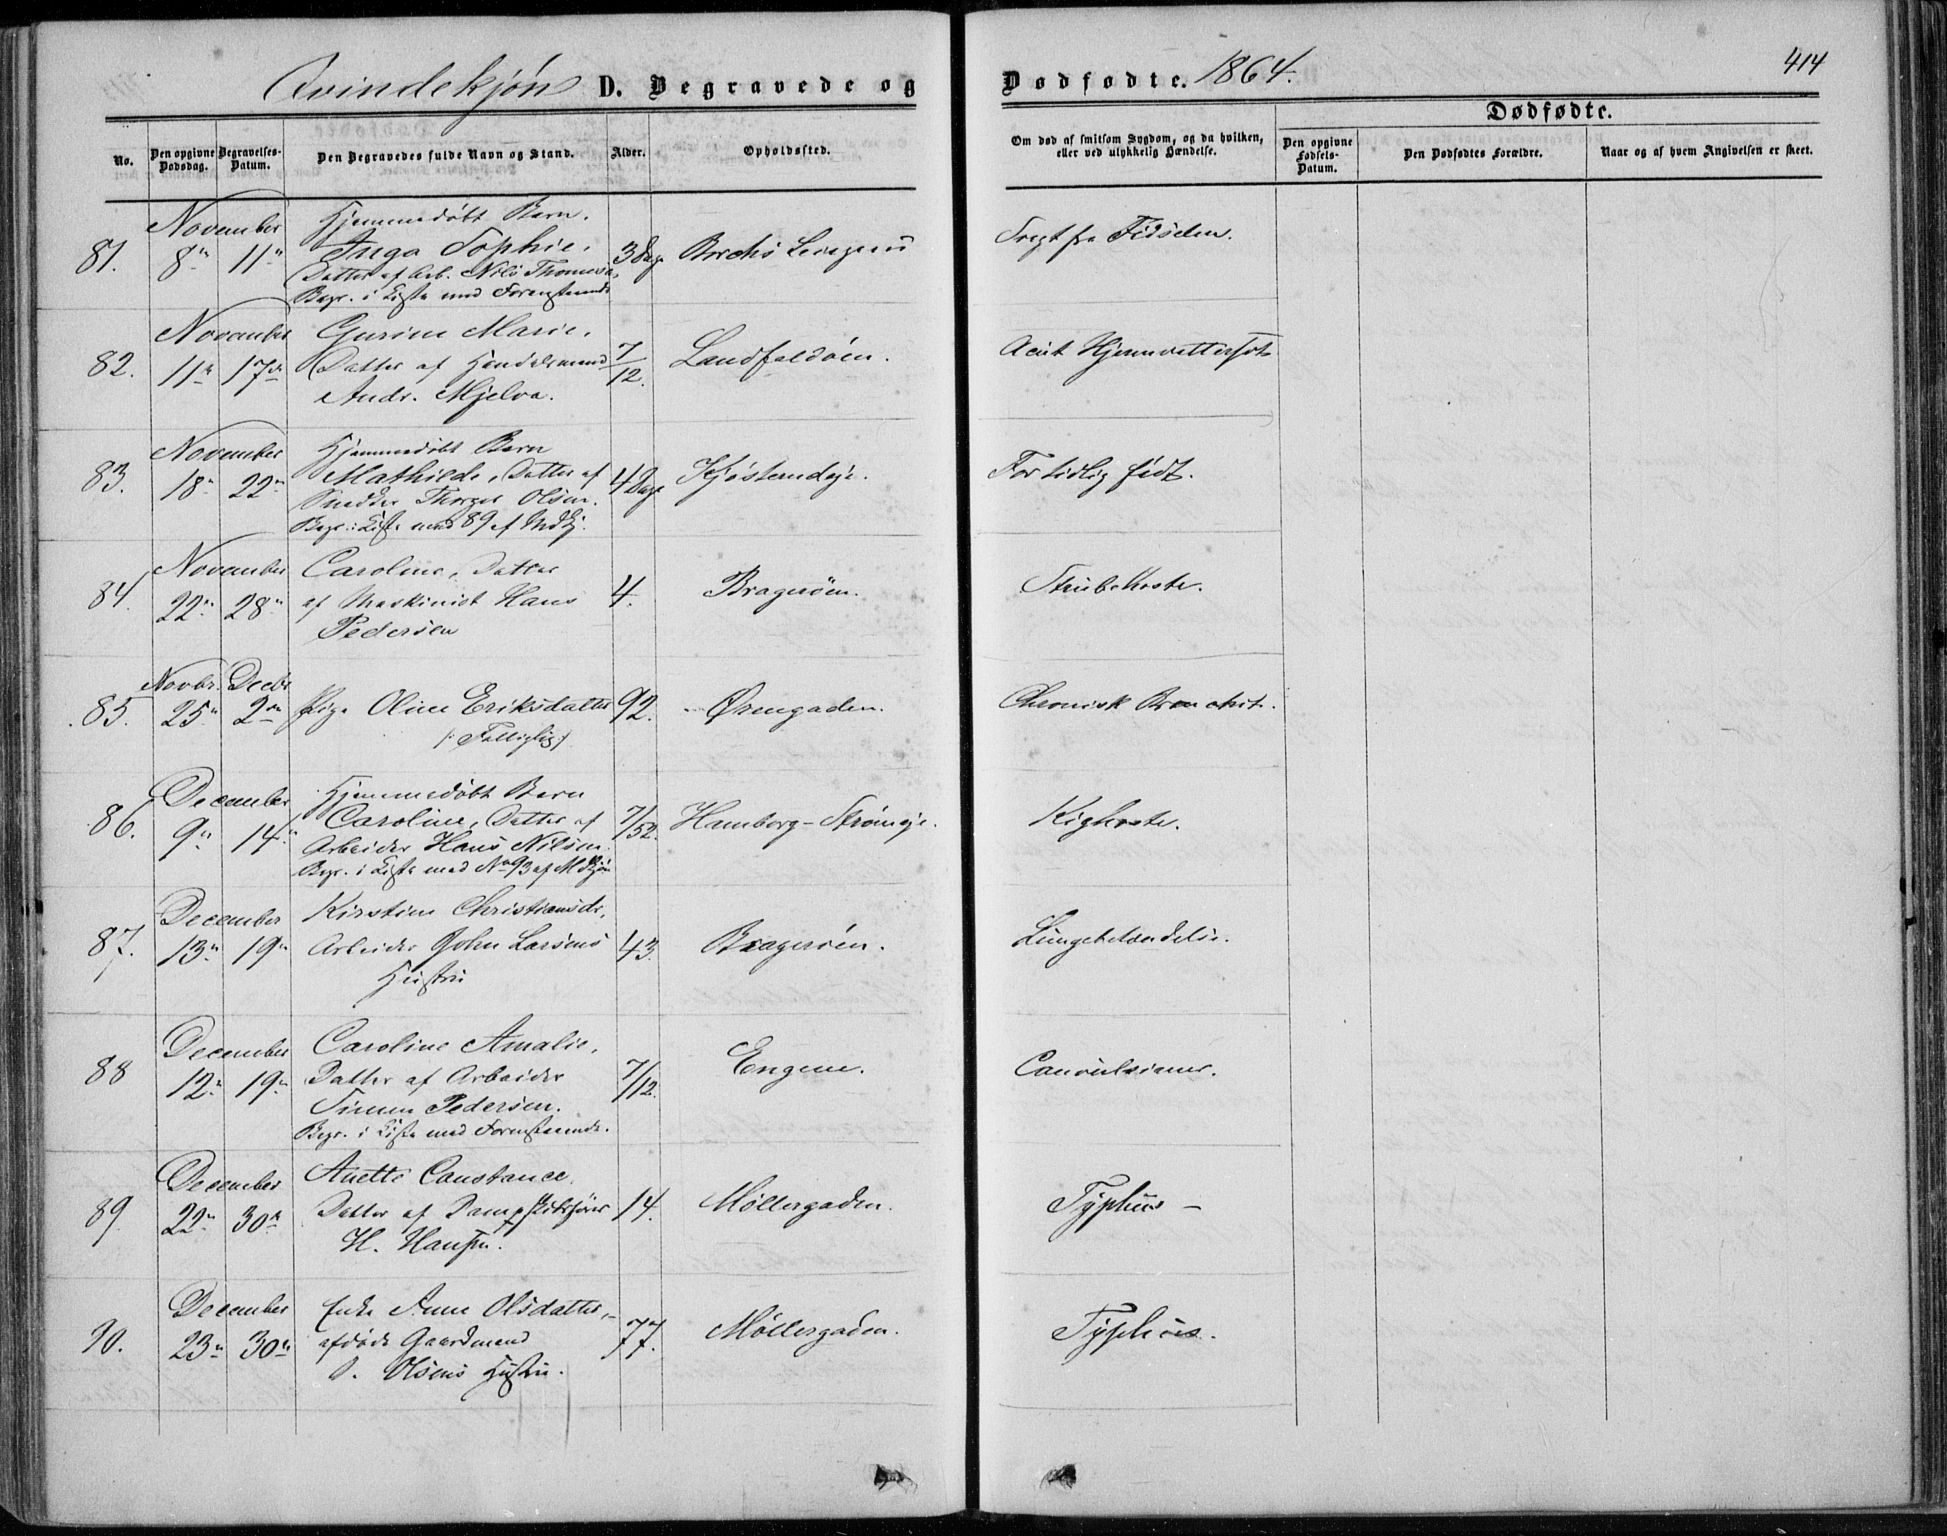 Qvindekjøn D. Begravede og Dødfødte. 1864. 414
No. Den opgivne Dødsdag. Begravelses-Datum. Den Begravedes fulde Navn og Stand. Alder. Opholdssted. Om død af smitsom Sygdom, og da hvilken, eller ved ulykkelig Hændelse. Dødfødte. Den opgivne Fødsels-Datum. Den Dødfødtes Forældre. Naar og af hvem Angivelsen er skeet.
November Hjemmedøbt Barn.
81. 8de 11te Inga Sophie, 3 Dage Svagt fra Fødselen.
Datter af Arb. Nils Thomesen,
Begr. i Kiste med Forenstaaende
November Gurine Marie,
82. 11te 17de Datter af Handelsmand 7/12. Landfaldøen. Acut Hjernevattersot
Andr. Mjelva.
November Hjemmedøbt Barn
83. 18de 22de Mathilde, Datter af 4 Dage For tidlig født.
Snedker Olsen.
Begr. i Kiste med 89 af Mdkj.
November Caroline, Datter
84. 22de 28de af Maskinist Hans 4. Bragerøen. Strubehoste.
Pedersen
Novbr. Decbr
85. 25de 2den Pige Oline Eriksdatter 92. Ørengaden. Chronisk Bronchit.
/: Fattiglig :/
December Hjemmedøbt Barn
86. 9de 14de Caroline, Datter af 7/52. Hamborg-Strømsøe. Kighoste.
Arbeider Hans Nilsen.
Begr. i Kiste med No 93 af Mdkjøn
December Kirstine Christiansdr,
87. 13de 19de Arbeider John Larsens 43. Bragerøen. Lungebetændelse.
Hustru
December Caroline Amalie,
88 12te 19de Datter af Arbeider 7/12. Engene. Convulsioner.
Simen Pedersen.
Begr. i Kiste med Forenstaaende.
December Anette Constance
89. 22de 30te Datter af Dampskibsfører 14. Møllergaden. Typhus –
H. Hansen.
December Enke Anne Olsdatter,
90. 23de 30te afdøde Gaardmand 77. Møllergaden. Typhus.
Olsens Hustru.